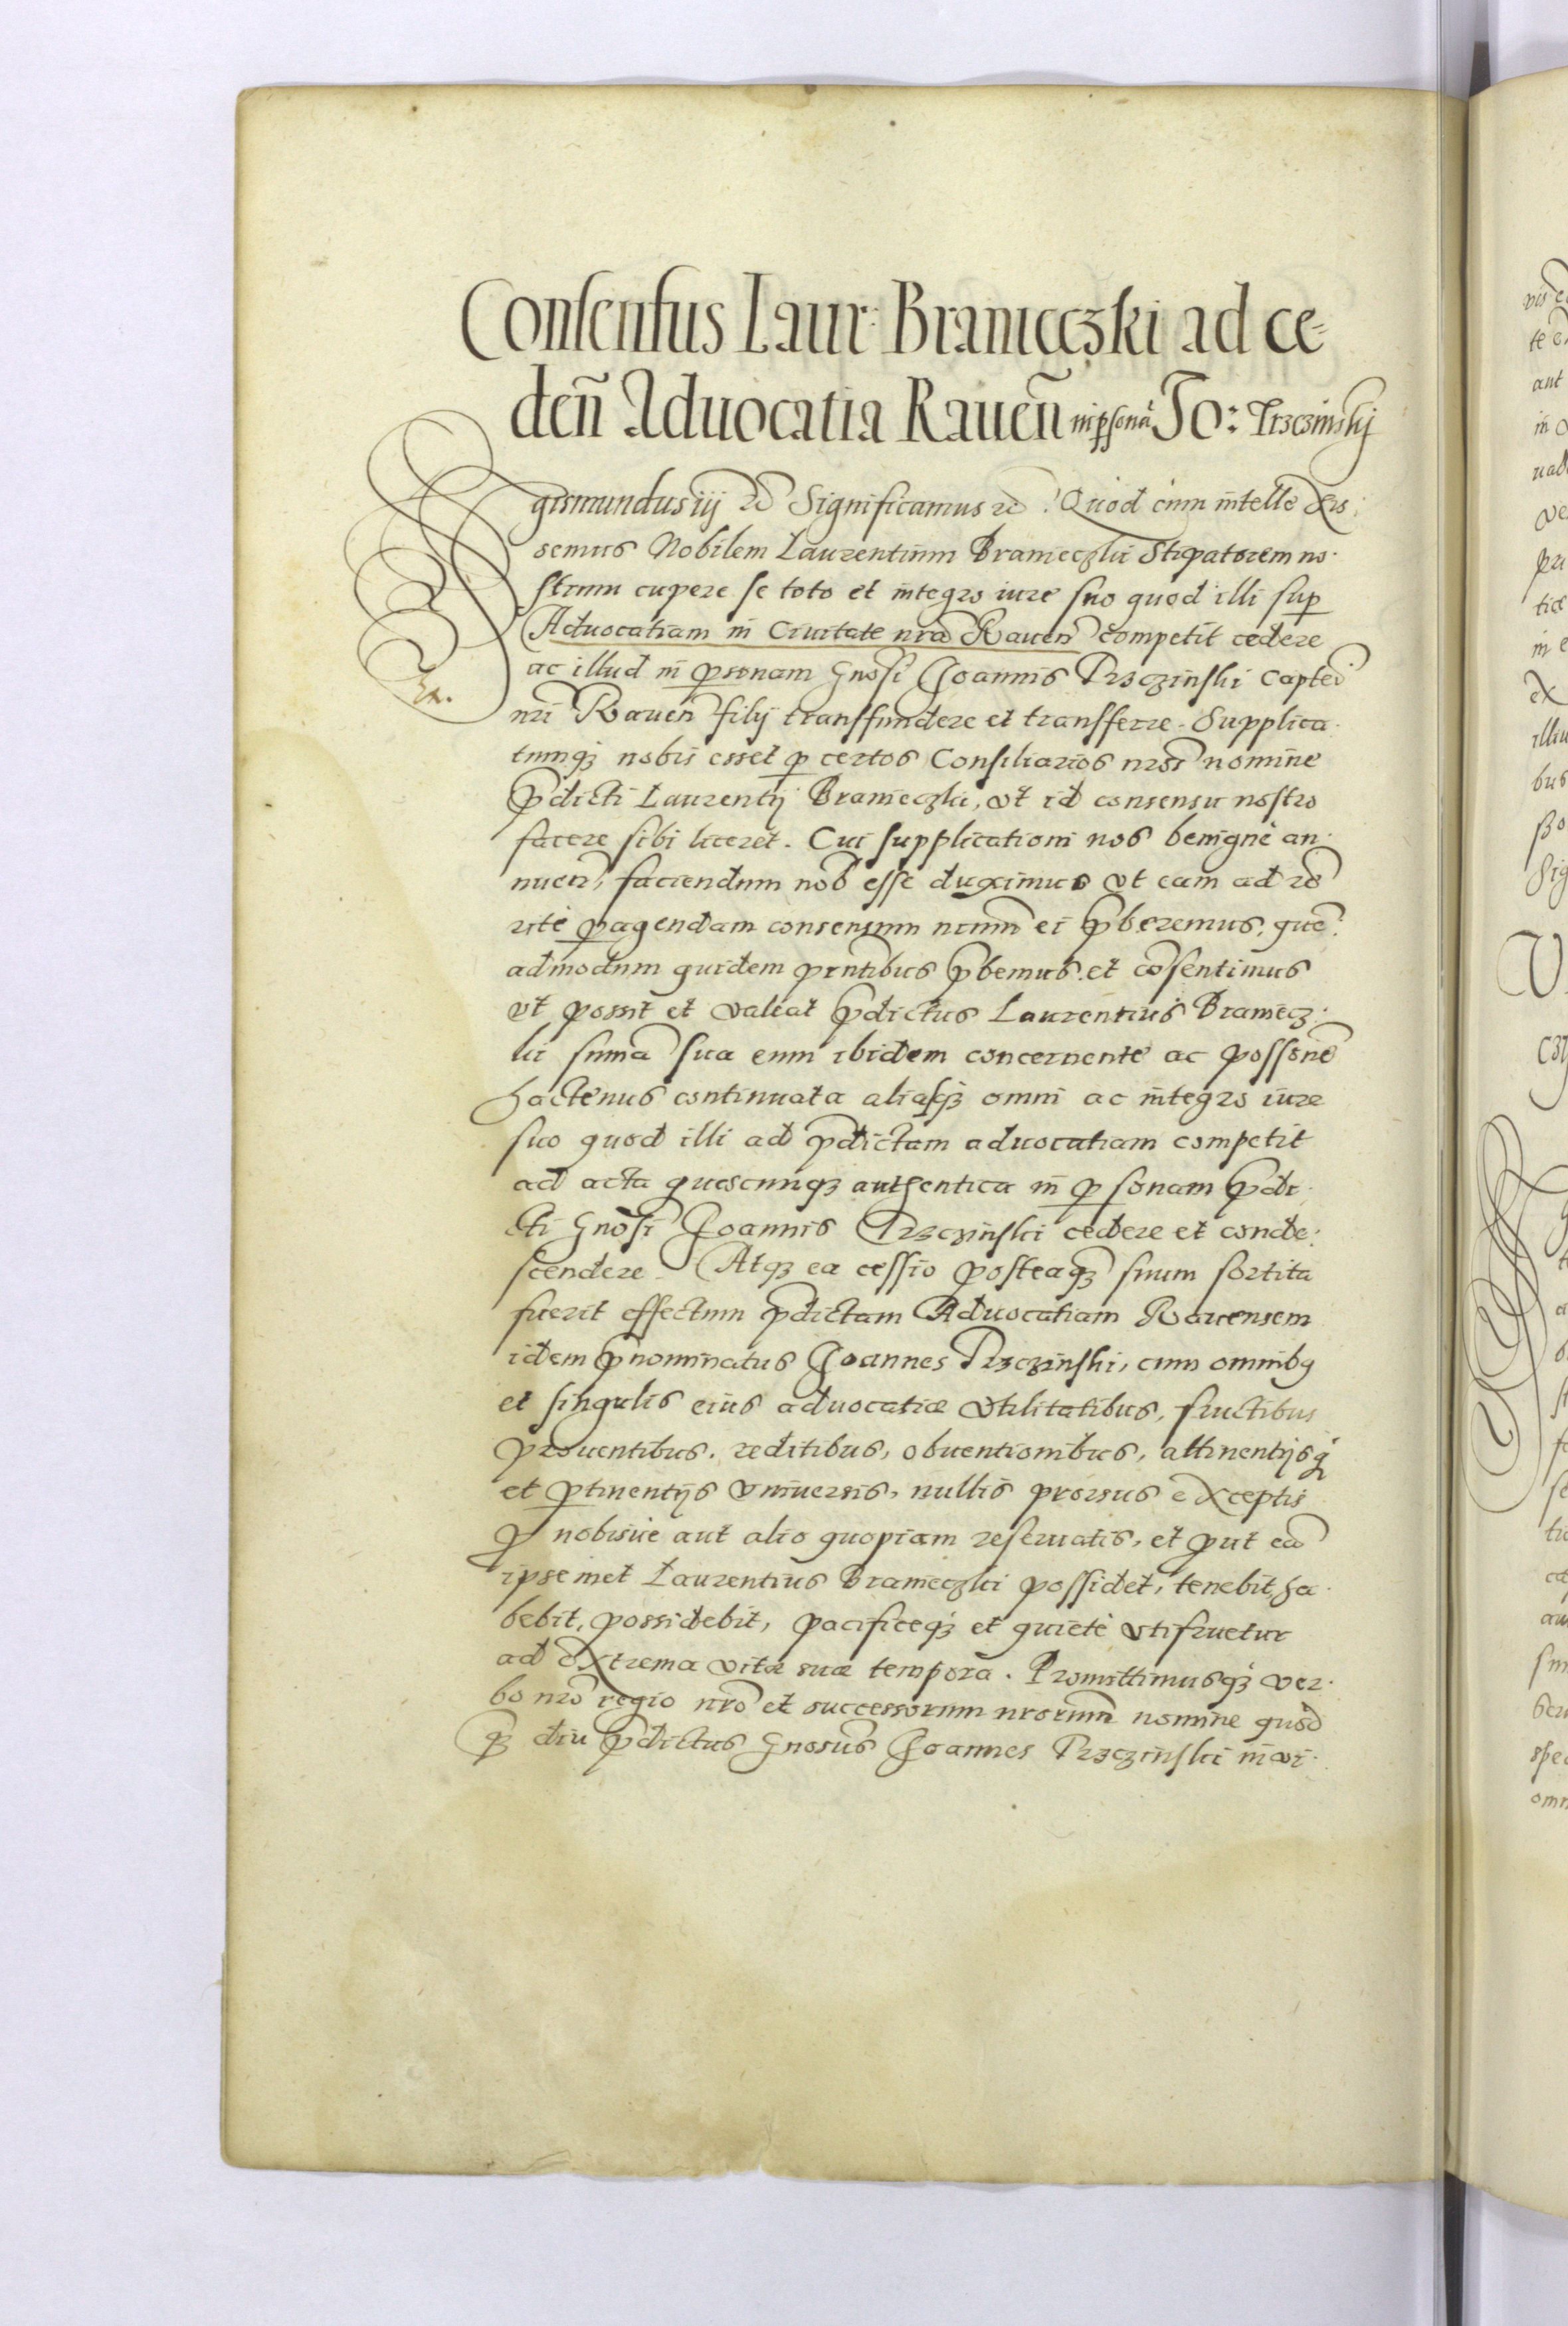 Consensus Laur: Branieczki ad ce=
deñ Aduocatia Raueñ in psonã Jo: Trzczinskij
Sigismundus iij rc Significamus rc. Quod cum intellexis
semus Nobilem Laurentium Branieczki Stipatorem no
strum cupere se toto et integro iure suo quod illi sup
Aduocatiam in Ciuitate nra Rauen competit cedere
ac illud in psonam Gnosi Joannis Trzczinski Captei
nri Rauen filij transfundere et transferre. Supplica
tumqз nobis esset p certos Consiliarios nros nomine
pdicti Laurentij Branieczki, vt id consensu nostro
facere sibi liceret. Cui supplicationi nos benignè an
nuen, faciendum nob esse duximus vt eam ad rc
ritè pagendam consensum nrum ei pberemus, que
admodum quidem pntibus pbemus et cosentimus
vt possit et valeat pdictus Laurentius Braniecz
ki suma sua eum ibidem concernente ac possone
hactenus continuata aliasqз omni ac integro iure
suo quod illi ad pdictam aduocatiam competit
ad acta quæcumqз authentica in psonam pdi
cti Gnosi Joannis Trzczinski cedere et conde
scendere. Atqз ea cessio posteaqз suum sortita
fuerit effectum pdictam Aduocatiam Rauensem
idem pnominatus Joannes Trzczinski, cum omnibq
et singulis eius aduocatiæ vtilitatibus, fructibus
prouentibus, reditibus, obuentionibus, attinentijsq
et ptinentijs vniuersis, nullis prorsus exceptis
p nobisue aut alio quopiam reseruatis, et put ea
ipsemet Laurentius Branieczki possidet, tenebit, ha
bebit, possidebit, pacificeqз et quietè vtifruetur
ad extrema vitæ suæ tempora. Promittimusqз ver
bo nro regio nro et successorum nrorum nomine quod
qз diu pdictus Gnosus Joannes Trzczinski in vi